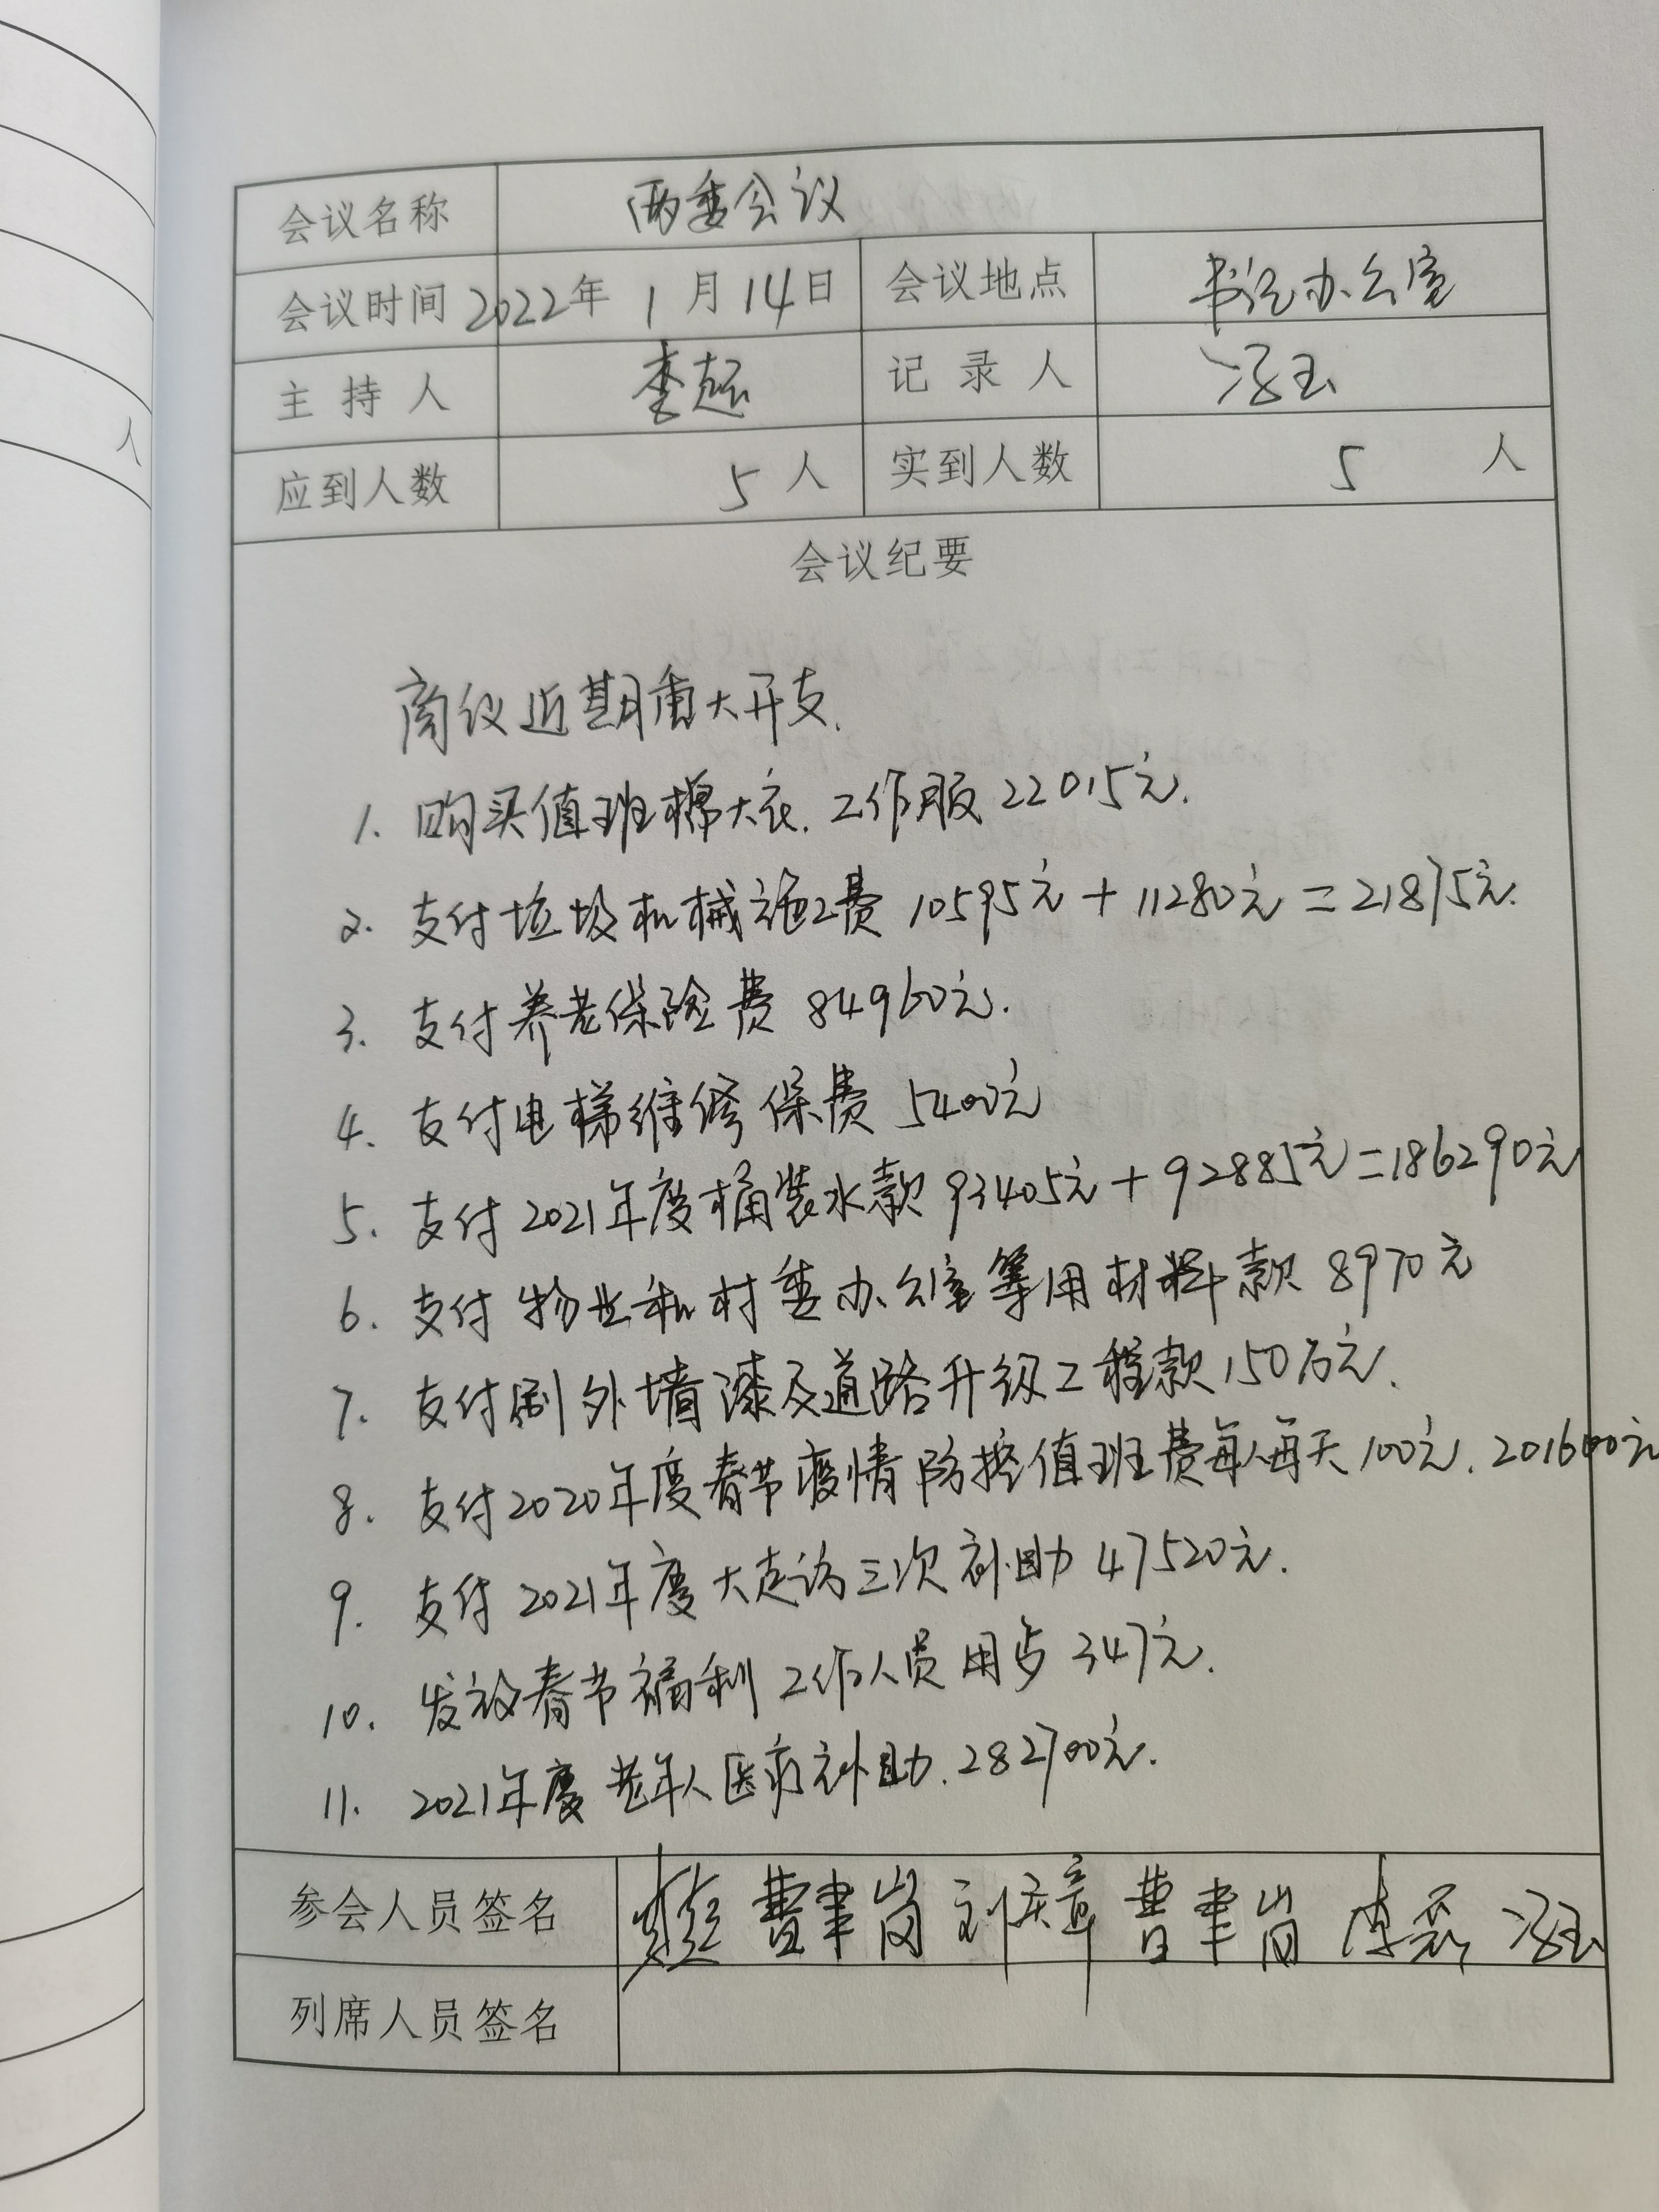 人
会议名称 两委会议
会议时间 2022年 1月14日 会议地点 书记办公室
主持人 李超 记录人 冯玉
应到人数 5人 实到人数 5人
会议纪要
商仪近期重大开支.
1. 购买值班棉大衣. 工作服 22015元.
2. 支付垃圾机械施工费 10595元+11280元=21875元.
3. 支付养老保险费 84960元.
4. 支付电梯维修保费 5400元
5. 支付2021年度桶装水款 93405元+92885元=186290元
6. 支付物业和村委办公室等用材料款 8970元
7. 支付刷外墙漆及道路升级工程款150万元.
8. 支付2020年度春节疫情防控值班费每人每天100元. 201600元
9. 支付2021年度大走访三次补助 47520元.
10. 发放春节福利 工作人员用步 347元.
11. 2021年度老年人医疗补助. 282700元.
参会人员签名 李超 曹聿岗 曹聿岗 冯玉
列席人员签名